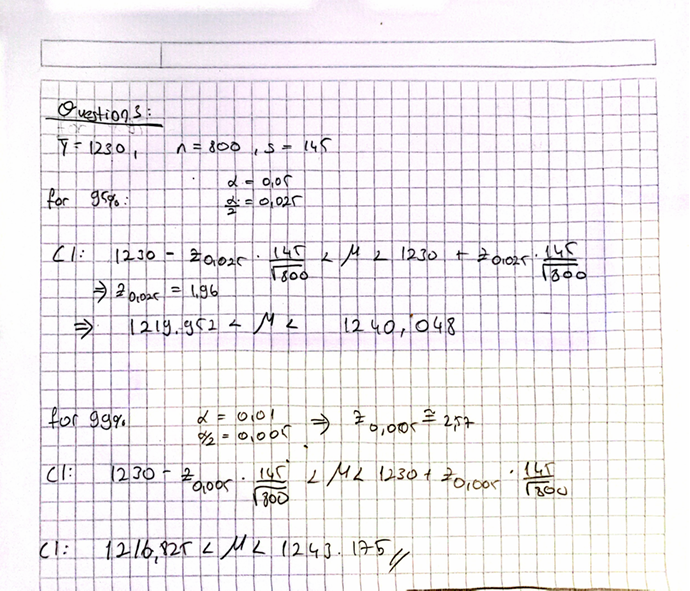 Question 3:
Ȳ = 1230, n = 800, s = 145
α = 0,05
for 95%: α/2 = 0,025
CI: 1230 - z0,025 · 145/√800 < μ < 1230 + z0,025 · 145/√800
⇒ z0,025 = 1,96
⇒ 1219.952 < μ < 1240,048
for 99% α = 0,01 ⇒ z0,005 ≅ 2,57
α/2 = 0,005
CI: 1230 - z0,005 · 145/√800 < μ < 1230 + z0,005 · 145/√800
CI: 1216,825 < μ < 1243.175 //